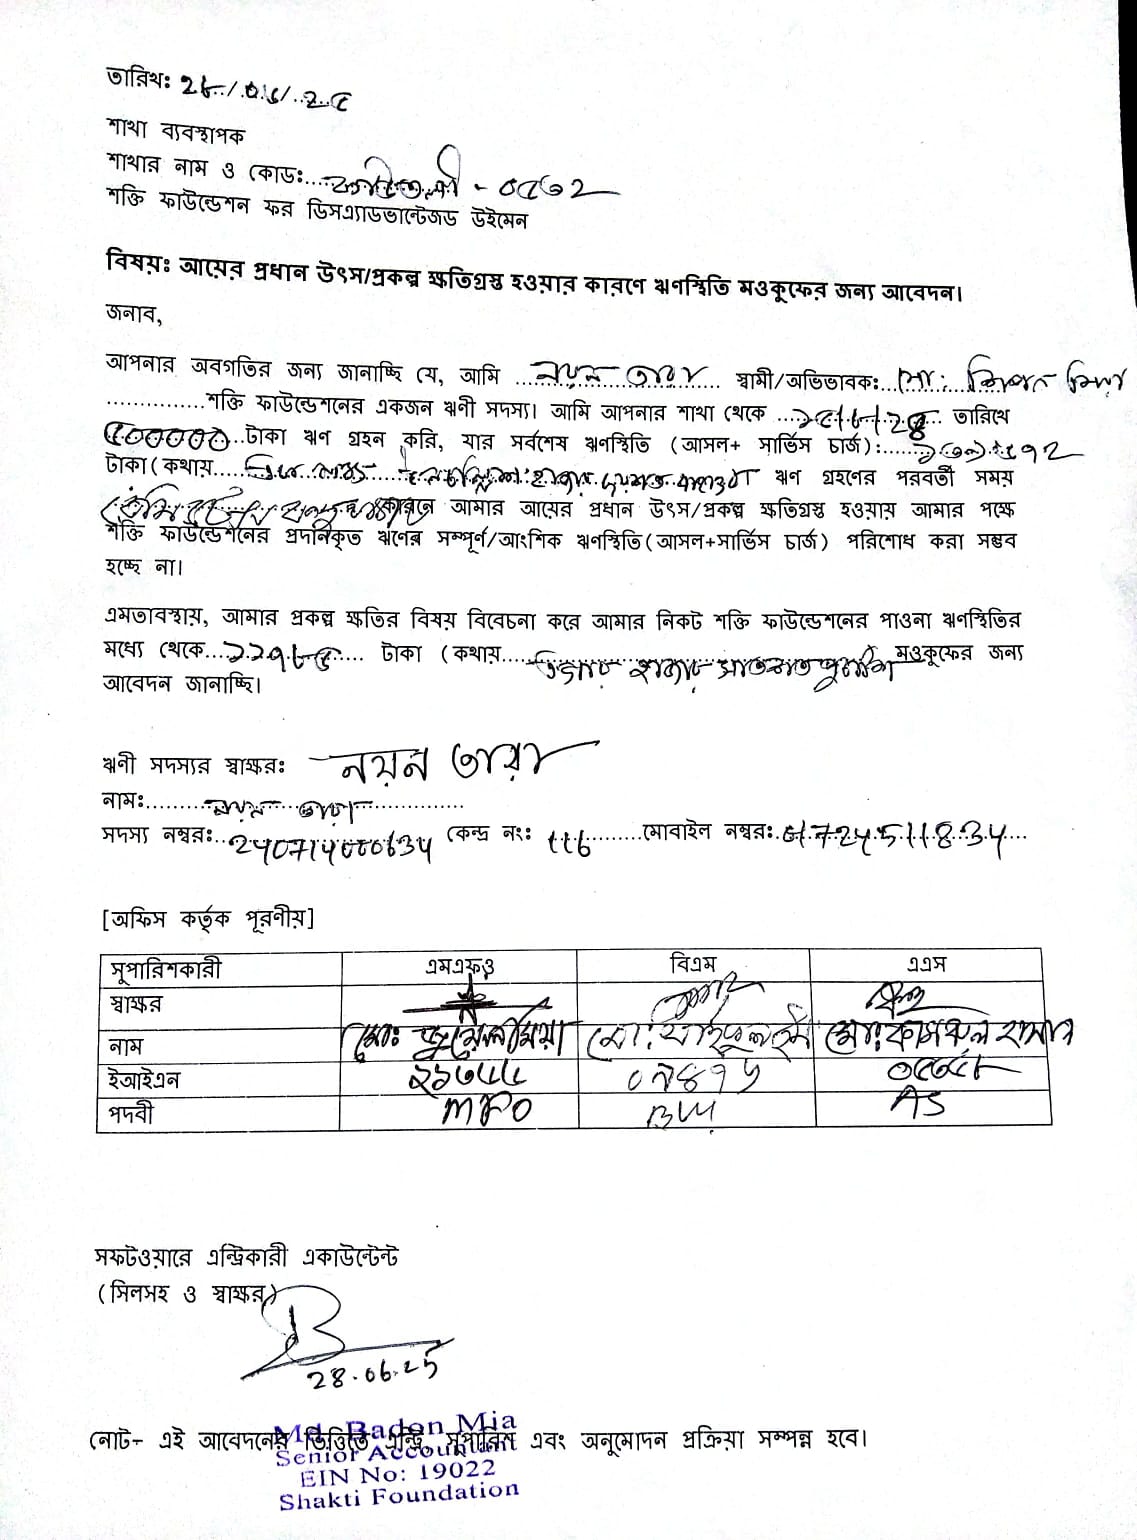 তারিখঃ ২৮/০৬/২৫
শাখা ব্যবস্থাপক
শাখার নাম ও কোডঃ - ০৫৩২
শক্তি ফাউন্ডেশন ফর ডিসএ্যাডভান্টেজড উইমেন
বিষয়ঃ আয়ের প্রধান উৎস/প্রকল্প ক্ষতিগ্রস্ত হওয়ার কারণে ঋণস্থিতি মওকুফের জন্য আবেদন।
জনাব,
আপনার অবগতির জন্য জানাচ্ছি যে, আমি নয়ন তারা স্বামী/অভিভাবকঃ মোঃ মিয়া
শক্তি ফাউন্ডেশনের একজন ঋণী সদস্য। আমি আপনার শাখা থেকে তারিখে
৫০০০০০ টাকা ঋণ গ্রহন করি, যার সর্বশেষ ঋণস্থিতি (আসল+ সার্ভিস চার্জ):
টাকা (কথায় এক লক্ষ হাজার ঋণ গ্রহণের পরবর্তী সময়
কারনে আমার আয়ের প্রধান উৎস/প্রকল্প ক্ষতিগ্রস্ত হওয়ায় আমার পক্ষে
শক্তি ফাউন্ডেশনের প্রদানিকৃত ঋণের সম্পূর্ণ/আংশিক ঋণস্থিতি (আসল+সার্ভিস চার্জ) পরিশোধ করা সম্ভব
হচ্ছে না।
এমতাবস্থায়, আমার প্রকল্প ক্ষতির বিষয় বিবেচনা করে আমার নিকট শক্তি ফাউন্ডেশনের পাওনা ঋণস্থিতির
মধ্যে থেকে ১১৭৮৫ টাকা (কথায় এগার হাজার সাতশত পঁচাশি মওকুফের জন্য
আবেদন জানাচ্ছি।
ঋণী সদস্যর স্বাক্ষরঃ নয়ন তারা
নামঃ নয়ন তারা
সদস্য নম্বরঃ 240714000634 কেন্দ্র নংঃ 116 মোবাইল নম্বরঃ 01724511834
[অফিস কর্তৃক পূরণীয়]
সুপারিশকারী এমএফও বিএম এএস
স্বাক্ষর
নাম মোঃ জুয়েল মিয়া মোঃ সাইফুল ইসলাম মোঃ কামরুল হাসান
ইআইএন
পদবী MFO BM AS
সফটওয়ারে এন্ট্রিকারী একাউন্টেন্ট
(সিলসহ ও স্বাক্ষর)
28.06.25
নোট- এই আবেদনের ভিত্তিতে এন্ট্রি, সুপারিশ এবং অনুমোদন প্রক্রিয়া সম্পন্ন হবে।
Md. Badon Mia
Senior Accountant
EIN No: 19022
Shakti Foundation